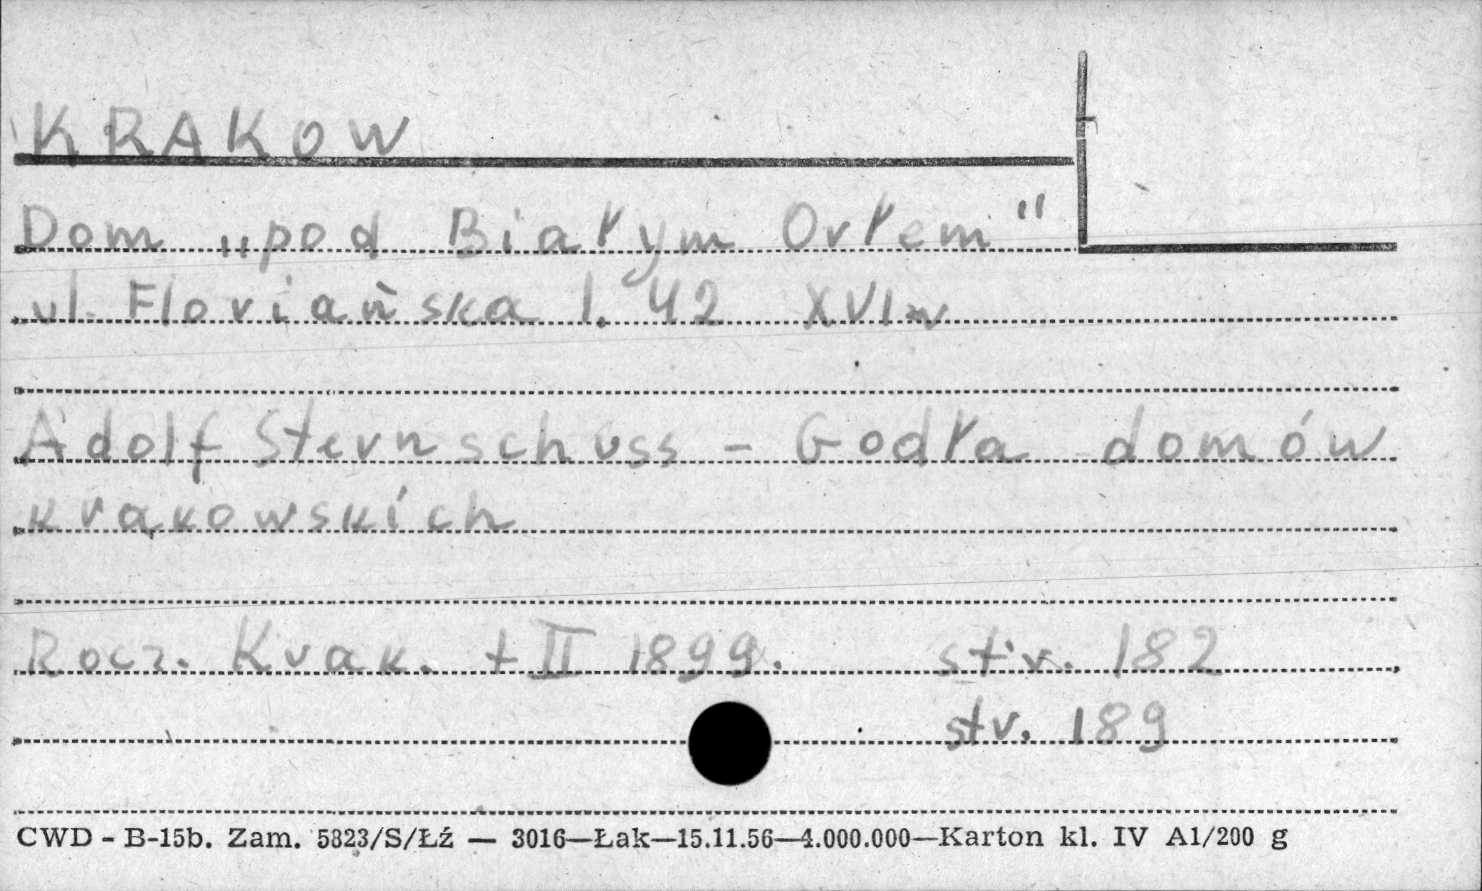 KRAKOW
Dom „pod Białym Orłem"
ul. Floriańska l. 42 XVIw
Adolf Sternschuss - Godła domów
krakowskich
Rocz. Krak. t II 1899. str. 182
str. 189
CWD - B-15b. Zam. 5823/S/Łź — 3016—Łak—15.11.56—4.000.000—Karton kl. IV A1/200 g